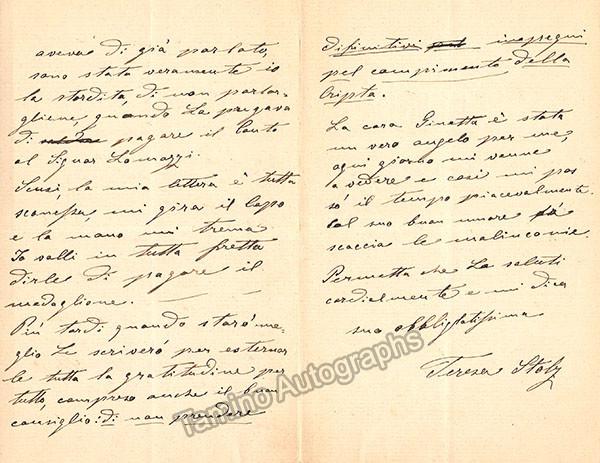 aveva di già parlato,
sono stata veramente io
la stordita, di non parlar-
gliene, quando La pregava
di pagare il conto
al Signor Lomazzi.
Scusi, la mia lettera è tutta
sconessa, mi gira il capo
e la mano mi trema
Io volli in tutta fretta
dirle di pagare il
medaglione. — —
Più tardi quando starò me-
glio Le scriverò per esternar
le tutta la gratitudine per
tutto, compreso anche il buon
consiglio: di non prendere
difinitivi impegni
pel compimento della
Cripta.
La cara Ginetta è stata
un vero angelo per me,
ogni giorno mi venne
a vedere e così mi pas
sò il tempo piacevolmente.
Col suo buon umore fà
scaccia le malinconie.
Permetta che La saluti
cordialmente e mi dica
sua obbligatissima
Teresa Stolz
Tamino Autographs